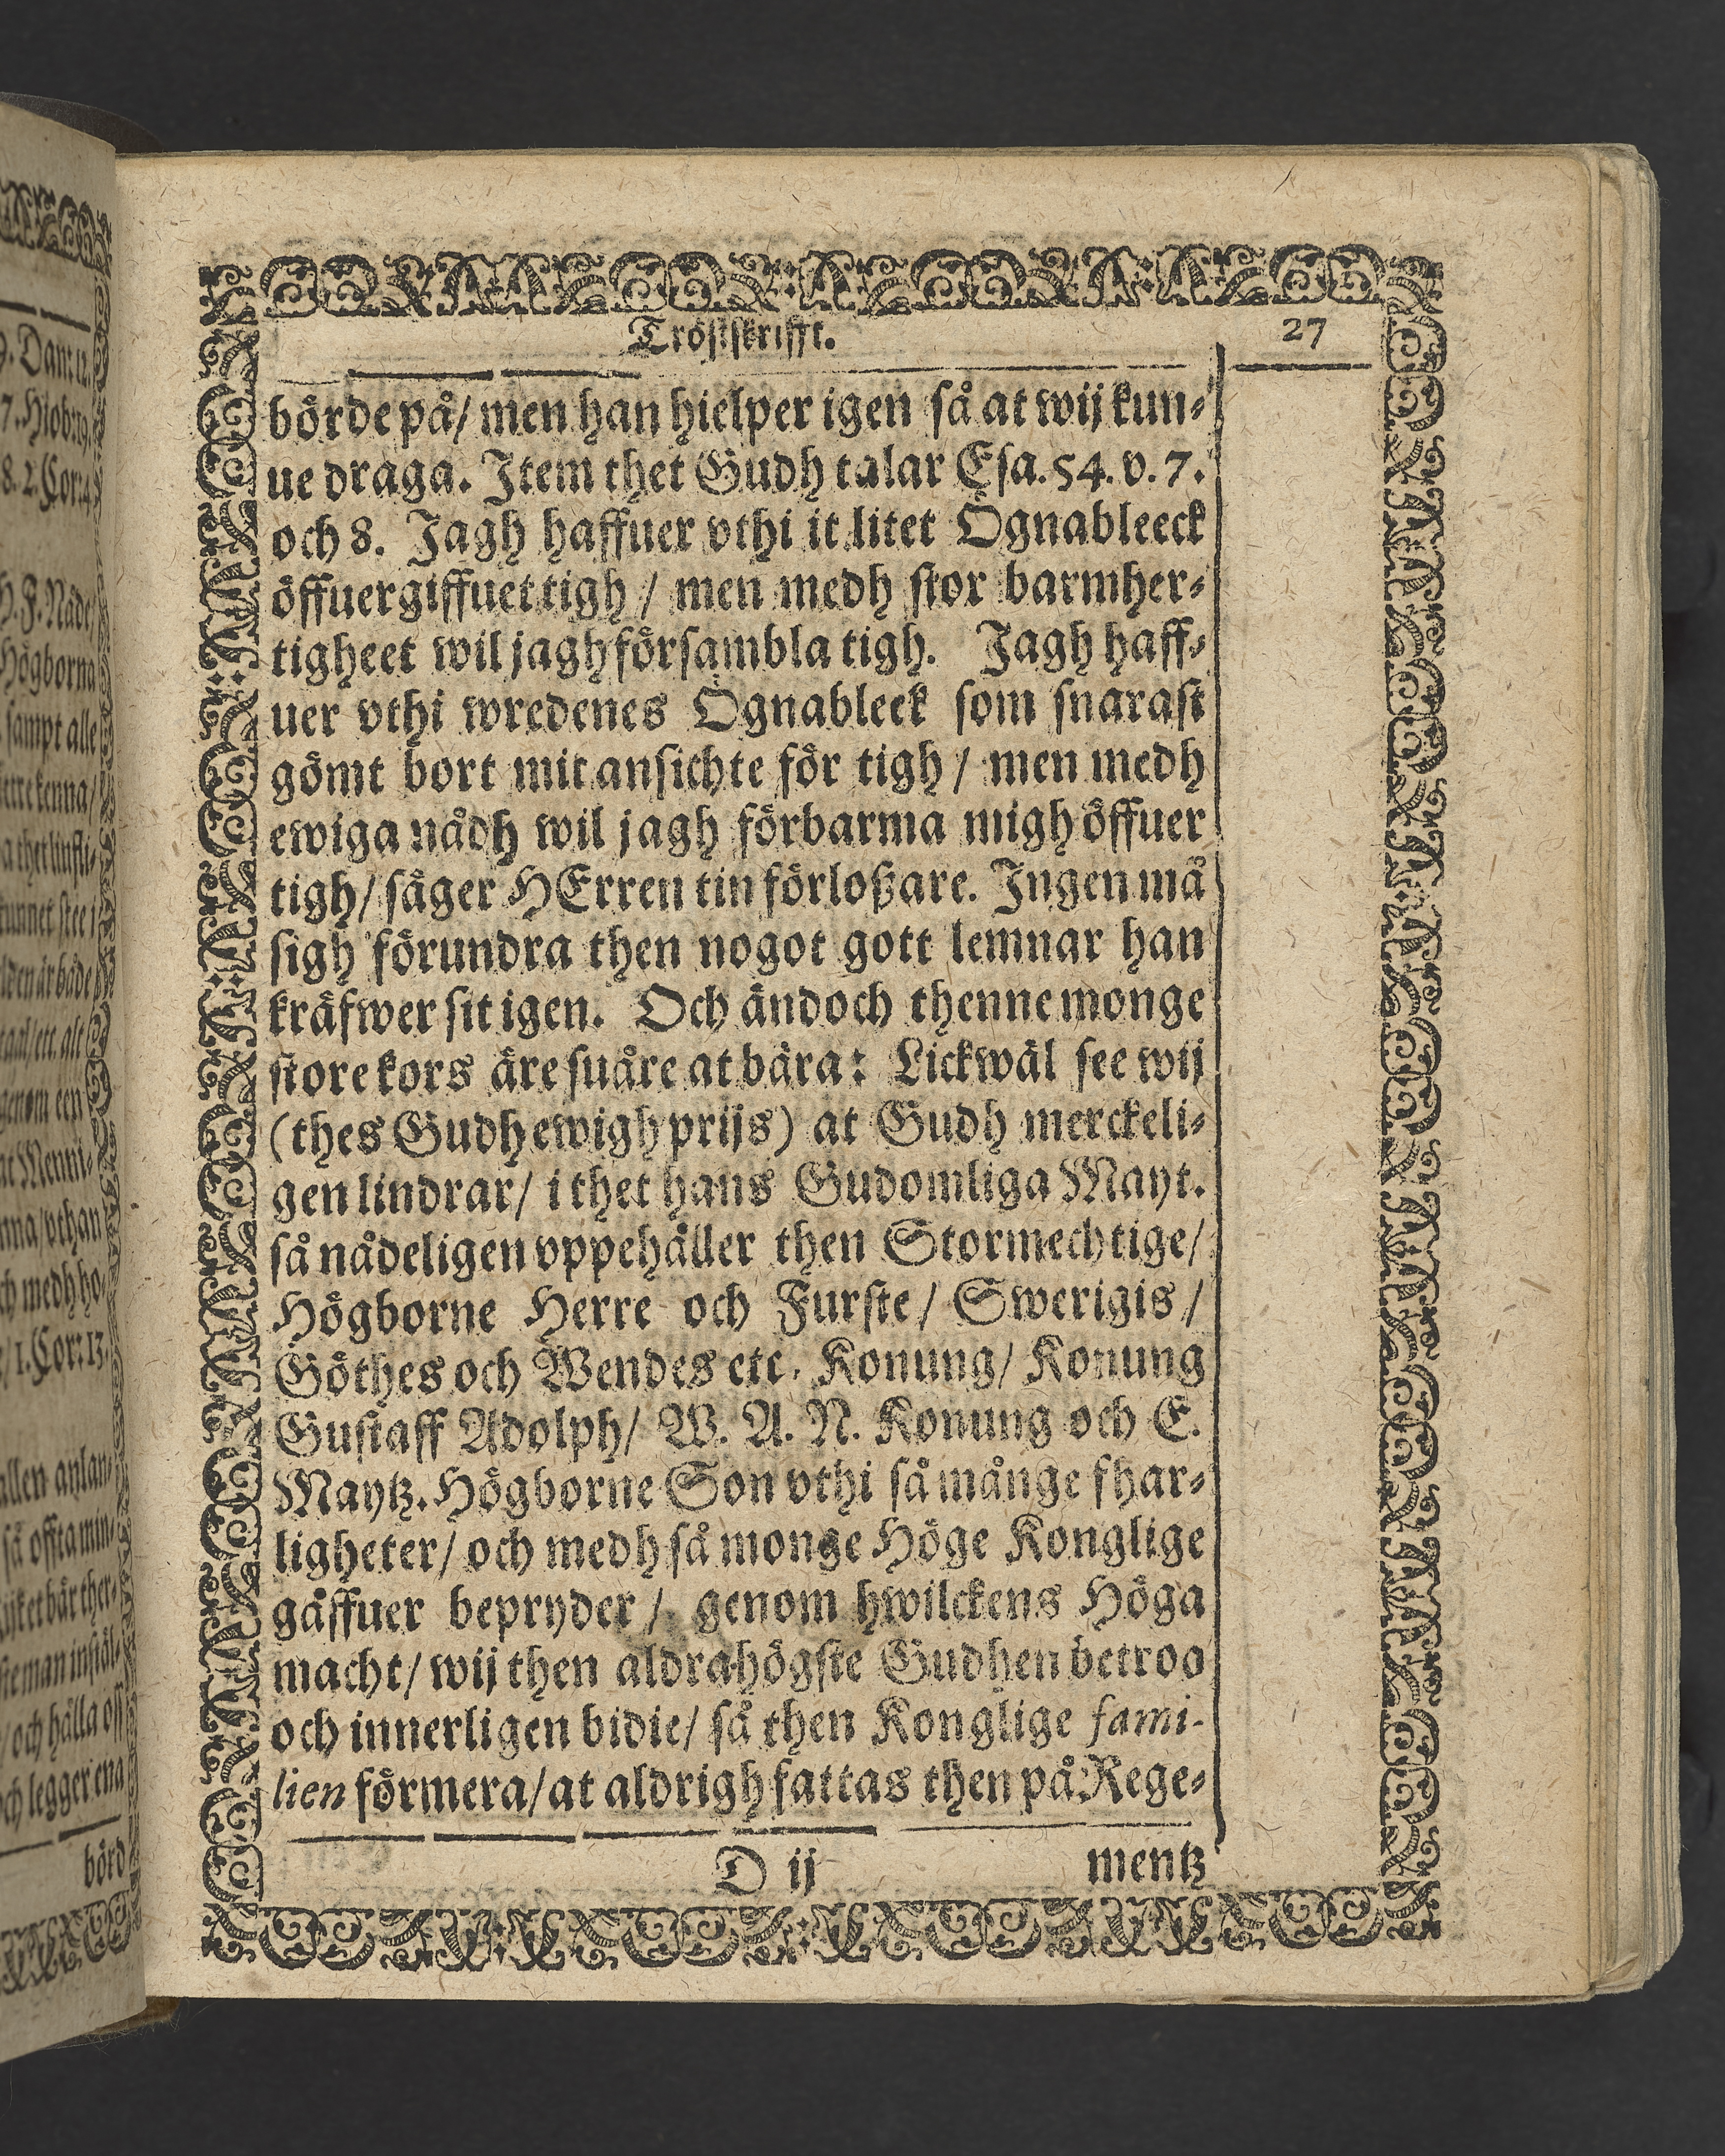 Tröstskrifft.
27
börde på/ men han hielper igen så at wij kun⸗
ue draga. Item thet Gudh talar Esa. 54. v. 7.
och 8. Jagh haffuer vthi it litet Ögnableeck
öffuergiffuet tigh / men medh stor barmher⸗
tigheet wil jagh försambla tigh. Jagh haff⸗
uer vthi wredenes Ögnableek som snarast
gömt bort mit ansichte för tigh / men medh
ewiga nådh wil jagh förbarma migh öffuer
tigh/ säger HErren tin förloßare. Ingen må
sigh förundra then nogot gott lemnar han
kräfwer sit igen. Och ändoch thenne monge
store kors äre suåre at bära: Lickwäl see wij
(thes Gudh ewigh prijs) at Gudh merckeli⸗
gen lindrar/ i thet hans Gudomliga Mayt.
så nådeligen vppehåller then Stormechtige/
Högborne Herre och Furste/ Swerigis/
Göthes och Wendes etc. Konung/ Konung
Gustaff Adolph/ W. A. N. Konung och E.
Maytz. Högborne Son vthi så månge fhar⸗
ligheter/ och medh så monge Höge Konglige
gåffuer bepryder / genom hwilckens Höga
macht/ wij then aldrahögste Gudhen betroo
och innerligen bidie/ så then Konglige fami-
lien förmera/ at aldrigh fattas then på Rege⸗
D ij
mentz